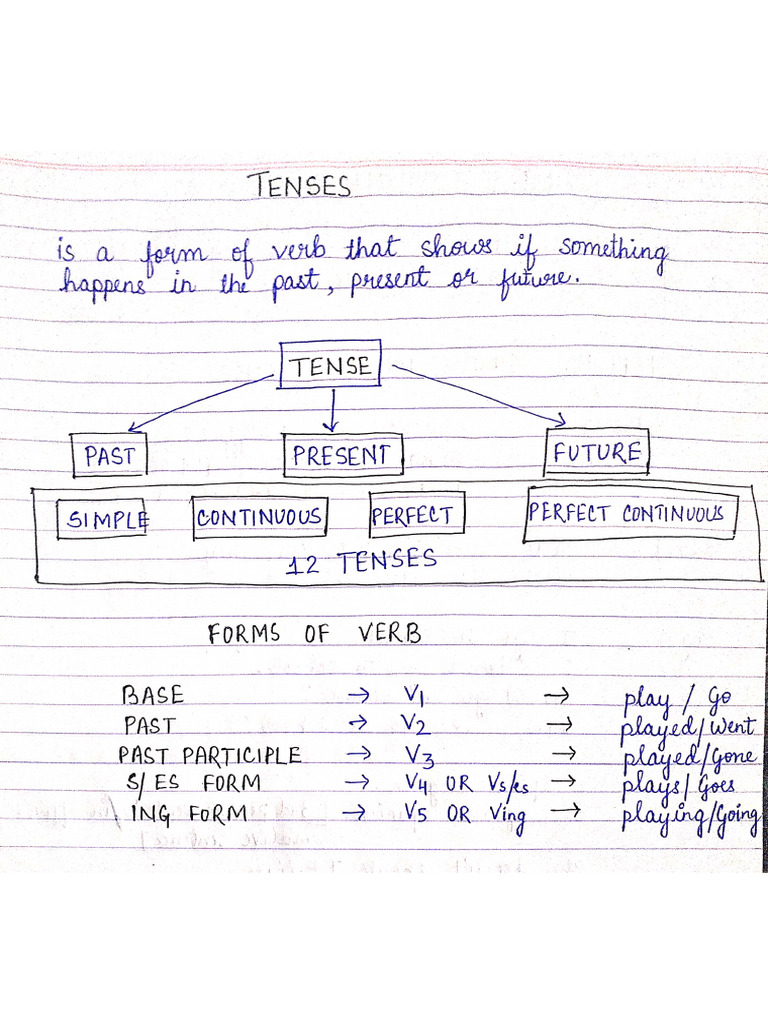 TENSES
is a form of verb that shows if something
happens in the past, present or future.
TENSE
PAST PRESENT FUTURE
SIMPLE CONTINUOUS PERFECT PERFECT CONTINUOUS
12 TENSES
FORMS OF VERB
BASE → V1 → play / Go
PAST → V2 → played/Went
PAST PARTICIPLE → V3 → played/Gone
S/ES FORM → V4 OR Vs/es → plays/Goes
ING FORM → V5 OR Ving → playing/Going